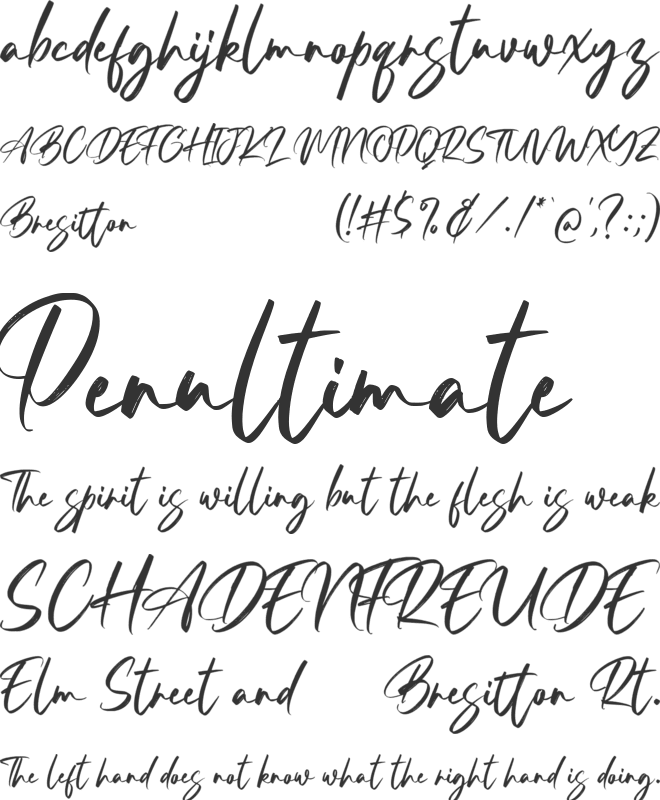 abcdefghijklmnopqrstuvwxyz
ABCDEFGHIJKLMNOPQRSTUVWXYZ
Bresitton (!#$%&/.|*`@',?:;)
Penultimate
The spirit is willing but the flesh is weak
SCHADENFREUDE
Elm Street and Bresitton Rt.
The left hand does not know what the right hand is doing.